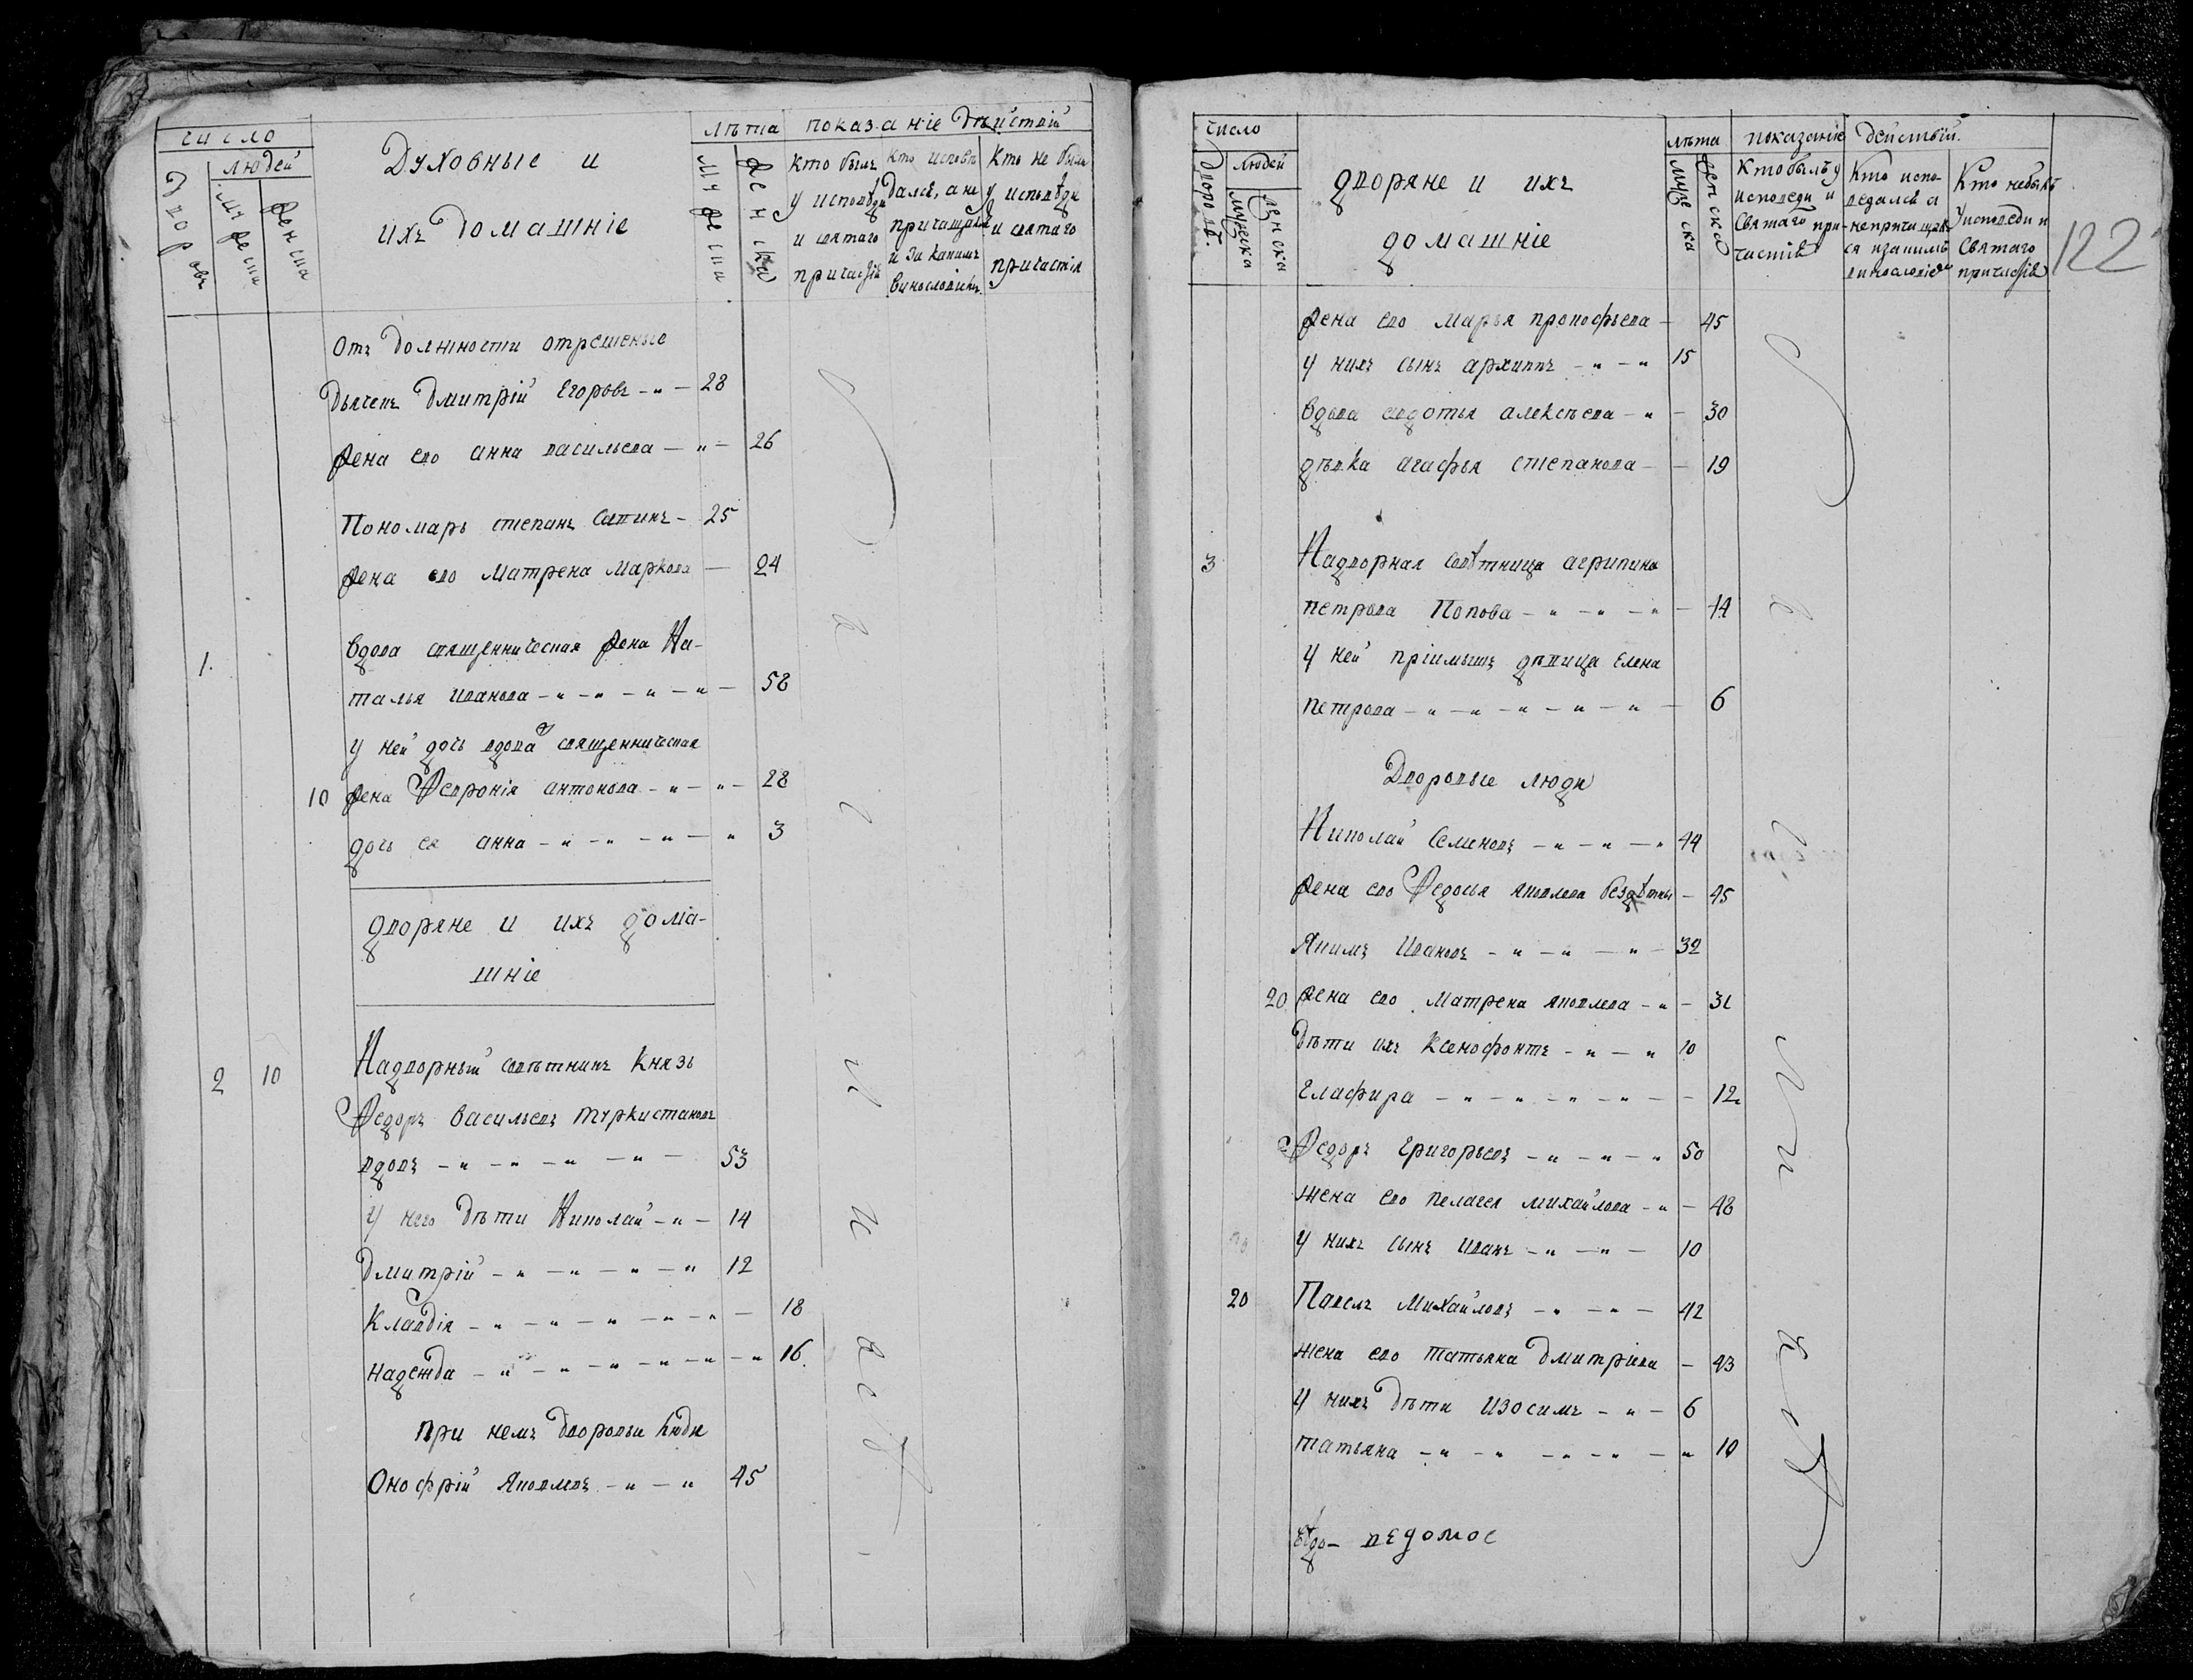 число
людей
дворовъ
мужеска
женска
Духовные и
ихъ домашніе
лѣта
мужеска
женска
показаніе дѣйствій
кто былъ
у исповѣди
и святаго
причастія
кто исповѣ
дался, а не
причащался
и за какимъ
винословіемъ
кто не былъ
у исповѣди
и святаго
причастія
Отъ должности отрешеные
Дьячекъ Дмитрій Егоровъ - 28
жена его анна васильева - 26
Пономарь степанъ Савинъ - 25
жена его Матрена Маркова - 24
1. вдова священническая жена На-
талья иванова - 58
у ней дочь вдова священническая
10 жена Февронія антонова - 28
дочь ея анна - 3
дворяне и ихъ дома-
шніе
2 10 Надворный совѣтникъ Князь
Федоръ васильевъ туркистановъ
вдовъ - 53
у него дѣти Николай - 14
Дмитрій - 12
Клавдія - 18
надежда - 16.
при немъ дворовыи люди
Онофрій Яковлевъ - 45
число
дворовъ.
людей
мужеска
женска
дворяне и ихъ
домашніе
лѣта
мужеска
женска
показаніе действій.
Кто былъ у
исповеди и
святаго при-
частія
Кто испо-
ведался а
непричащал
ся изакимъ
винословіем
Кто небылъ
уисповеди и
Святаго
причастія
122
жена его марья прокофьева - 45
у нихъ сынъ архиппъ - 15
вдова авдотья алексѣева - 30
дѣвка агафья степанова - 19
3 Надворная совѣтница агрипина
петрова Попова - 44
у ней пріимышъ дѣвица Елена
петрова - 6
Дворовые люди
Николай Семеновъ - 44
жена его Федосья яковлева бездѣтны - 45
Якимъ Ивановъ - 32
20 жена его матрена яковлева - 31
Дѣти ихъ Ксенофонтъ - 10
Глафира - 12.
Федоръ Григорьевъ - 50
жена его пелагея михайлова - 48
у нихъ сынъ иванъ - 10
20 Павелъ Михайловъ - 42
жена его татьяна Дмитріева - 43
у нихъ Дѣти Изосимъ - 6
татьяна - 10
ведомос